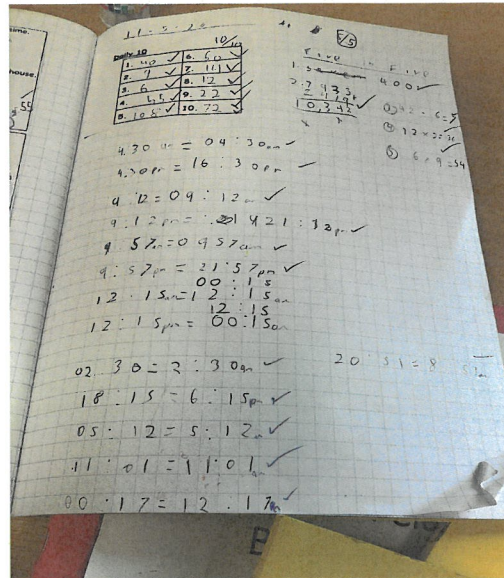 time.
house.
11.5.20
10/10
Daily 10
1. 40 ✓ 6. 60 ✓
2. 7 ✓ 7. 110 ✓
3. 6 ✓ 8. 12 ✓
4. 55 ✓ 9. 22 ✓
5. 105 ✓ 10. 72 ✓
5/5
Five in Five
1. 400 ✓
10,342 ✓
12 x 2 =
6 x 9 = 54
4.30 am = 04:30am ✓
4.30pm = 16:30pm ✓
9.12 = 09:12am ✓
9.12pm = 21:12pm ✓
9 57am = 0957am ✓
9:57pm = 21:57pm ✓
00:15
12:15am = 12:15am
12:15
12:15pm = 00:15am
02.30 = 2:30am ✓
20:51 = 8
18:15 = 6:15pm ✓
05:12 = 5:12am ✓
11:01 = 11:01am ✓
00:17 = 12.17am ✓